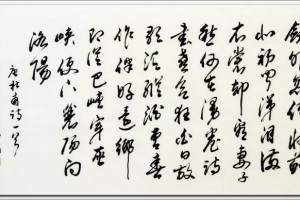 劍外忽傳收薊
北初聞涕淚滿
衣裳卻看妻子
愁何在漫卷詩
書喜欲狂白日放
歌須縱酒青春
作伴好還鄉
即從巴峽穿巫
峽便下襄陽向
洛陽
唐杜甫詩一首